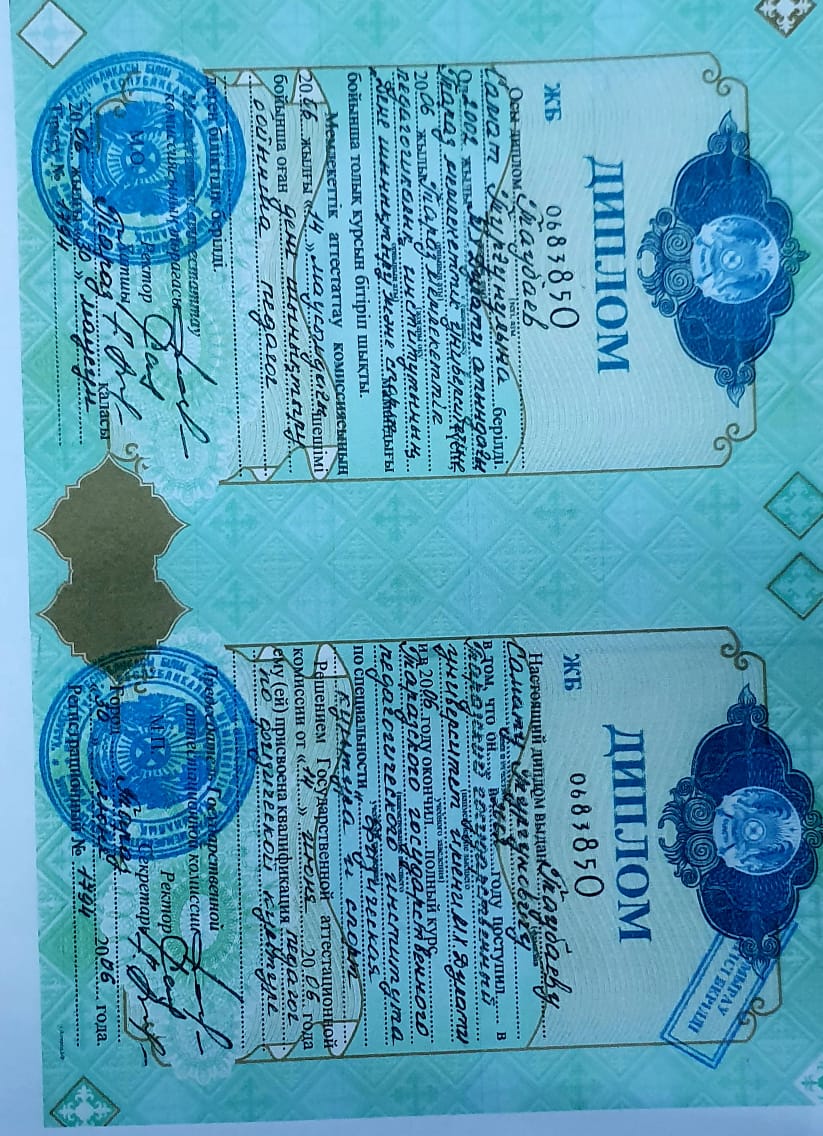 ДИПЛОМ
ЖБ 0683850
Осы диплом Таубаев
Самат Тургунулына берілді.
Ол 2002 жылы М.Х.Дулати атындағы
Тараз мемлекеттік университетіне
2006 жылы Тараз мемлекеттік
педагогикалық институтының
Дене шынықтыру және спорт мамандығы
бойынша толық курсын бітіріп шықты.
Мемлекеттік аттестаттау комиссиясының
2006 жылғы «14» маусымдағы шешімі
бойынша оған дене шынықтыру
бойынша педагог
деген біліктілік берілді.
Мемлекеттік аттестаттау
комиссиясының төрағасы
Ректор
М.О.
Хатшы
Тараз қаласы
2006 жылғы «30» маусым
Тіркеу № 1794
ДИПЛОМ
ЖБ 0683850
Настоящий диплом выдан Таубаеву
Самату Тургуновичу
в том, что он в 2002 году поступил в
Таразский государственный
(наименование высшего
университет имени М.Х.Дулати
учебного заведения)
и в 2006 году окончил полный курс
Таразского государственного
педагогического института
по специальности физическая
культура и спорт
Решением Государственной аттестационной
комиссии от «14» июня 2006 года
ему (ей) присвоена квалификация педагог
по физической культуре
Председатель Государственной
аттестационной комиссии
Ректор
М.П.
Секретарь
Город Тараз
«30» июня 2006 года.
Регистрационный № 1794
БЕРІЛДІ